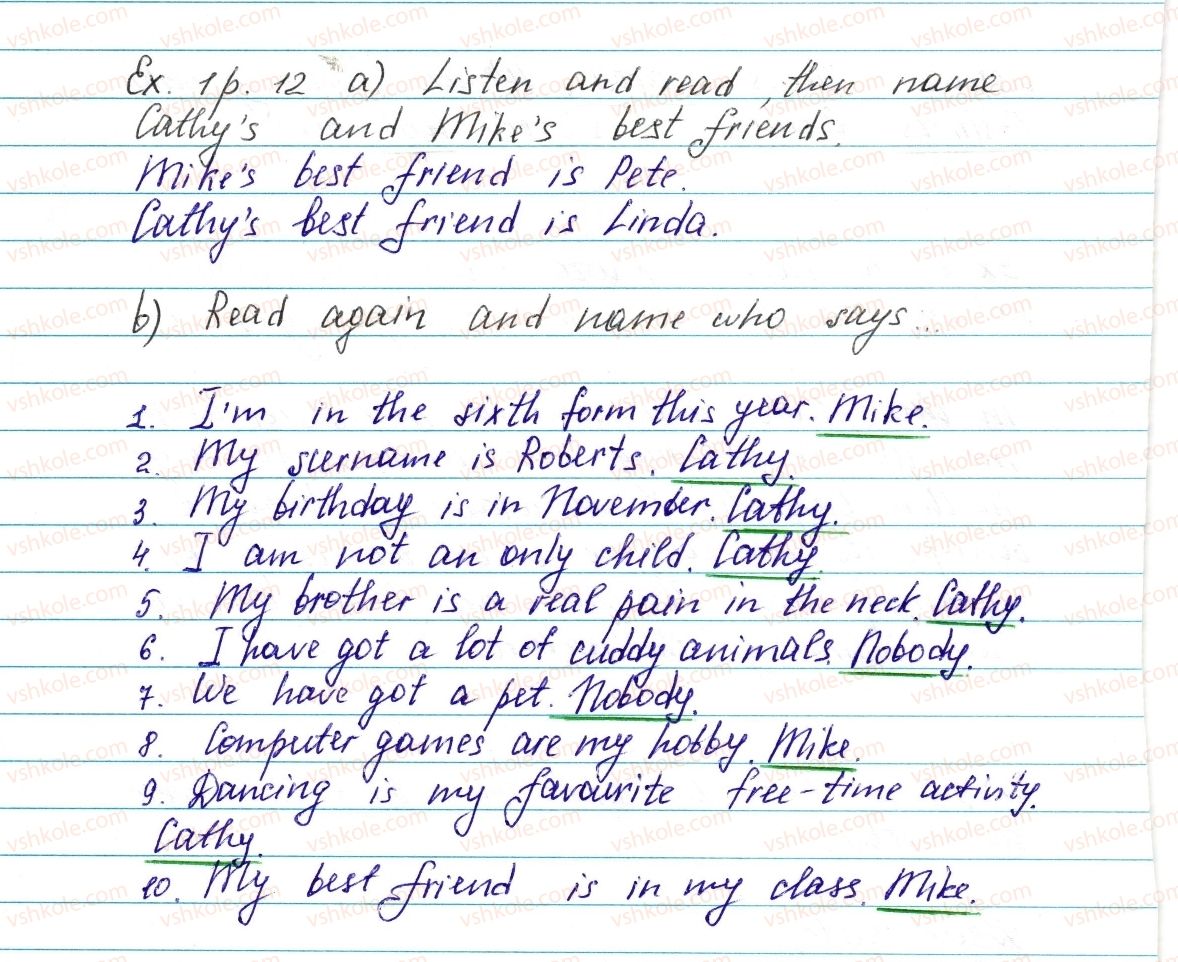 Ex. 1 p. 12 a) Listen and read, then name
Cathy's and Mike's best friends.
Mike's best friend is Pete.
Cathy's best friend is Linda.
b) Read again and name who says...
1. I'm in the sixth form this year. Mike.
2. My surname is Roberts. Cathy.
3. My birthday is in November. Cathy.
4. I am not an only child. Cathy.
5. My brother is a real pain in the neck. Cathy.
6. I have got a lot of cuddy animals. Nobody.
7. We have got a pet. Nobody.
8. Computer games are my hobby. Mike.
9. Dancing is my favourite free-time activity.
Cathy.
10. My best friend is in my class. Mike.
vshkole.com